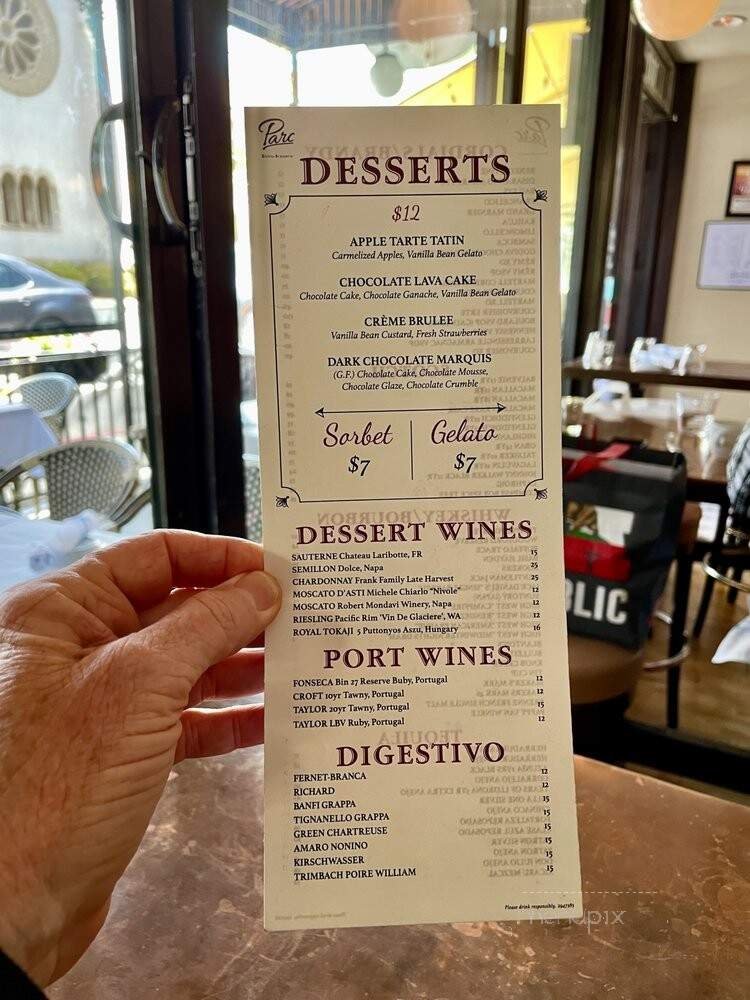 Parc
Bistro-Brasserie
DESSERTS
$12
APPLE TARTE TATIN
Carmelized Apples, Vanilla Bean Gelato
CHOCOLATE LAVA CAKE
Chocolate Cake, Chocolate Ganache, Vanilla Bean Gelato
CRÈME BRULEE
Vanilla Bean Custard, Fresh Strawberries
DARK CHOCOLATE MARQUIS
(G.F.) Chocolate Cake, Chocolate Mousse,
Chocolate Glaze, Chocolate Crumble
Sorbet Gelato
$7 $7
DESSERT WINES
SAUTERNE Chateau Laribotte, FR 15
SEMILLON Dolce, Napa 25
CHARDONNAY Frank Family Late Harvest 25
MOSCATO D'ASTI Michele Chiarlo "Nivole" 12
MOSCATO Robert Mondavi Winery, Napa 12
RIESLING Pacific Rim 'Vin De Glaciere', WA 12
ROYAL TOKAJI 5 Puttonyos Aszu, Hungary 16
PORT WINES
FONSECA Bin 27 Reserve Buby, Portugal 12
CROFT 10yr Tawny, Portugal 12
TAYLOR 20yr Tawny, Portugal 15
TAYLOR LBV Ruby, Portugal 12
DIGESTIVO
FERNET-BRANCA 12
RICHARD 12
BANFI GRAPPA 15
TIGNANELLO GRAPPA 15
GREEN CHARTREUSE 15
AMARO NONINO 15
KIRSCHWASSER 15
TRIMBACH POIRE WILLIAM 15
Please drink responsibly. 2947385
menupix
BLIC